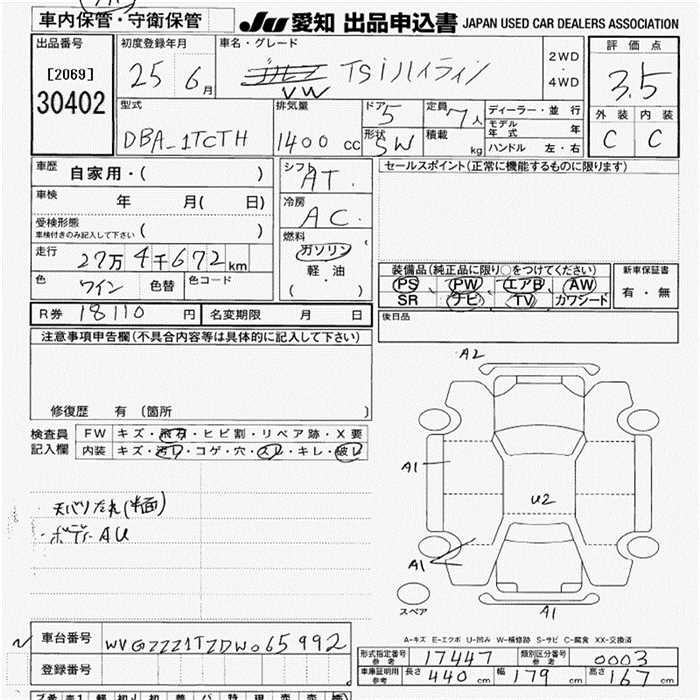 車内保管・守衛保管
JU 愛知 出品申込書 JAPAN USED CAR DEALERS ASSOCIATION
出品番号
[2069]
30402
初度登録年月
25 6月
車名・グレード
VW TSiハイライン
2WD
・
4WD
評価点
3.5
外装 内装
C C
型式
DBA-1TCTH
排気量
1400 cc
ドア 5
形状 SW
定員 7人
積載 kg
ディーラー・並行
モデル年式 年
ハンドル 左・右
車歴 自家用・( )
車検 年 月( 日)
受検形態
車検付きのみ記入して下さい ( )
走行 27万4千672km
色 ワイン 色替 色コード
シフト AT.
冷房 AC.
燃料
ガソリン
軽・油
( ・ )
セールスポイント(正常に機能するものに限ります)
装備品(純正品に限り○をつけてください)
PS PW エアB AW
SR ナビ TV カワシート
新車保証書
有・無
R券 18110 円 名変期限 月 日
後日品
注意事項申告欄(不具合内容等は具体的に記入して下さい)
修復歴 有(箇所 )
検査員記入欄
FW キズ・飛石・ヒビ割・リペア跡・X要
内装 キズ・汚レ・コゲ・穴・スレ・キレ・破レ
天バリたれ(半面)
・ボデーAU
A2
A1
U2
A1
A1
スペア
A-キズ E-エクボ U-凹み W-補修跡 S-サビ C-腐食 XX-交換済
車台番号 WVGZZZ1TZDW065992
登録番号
形式指定番号参考 17447 類別区分番号参考 0003
車庫証明用参考 長さ 440cm 幅 179cm 高さ 167cm